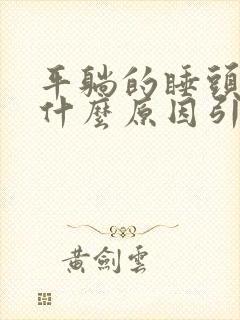 平躺的睡頭
什麼原因引
黃劍雲